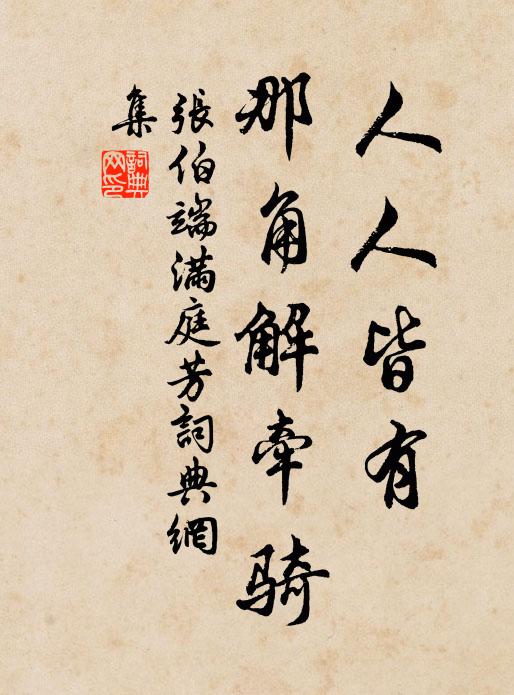 人人皆有
那角解牵骑
張伯端满庭芳詞典網
集
詞典
网印